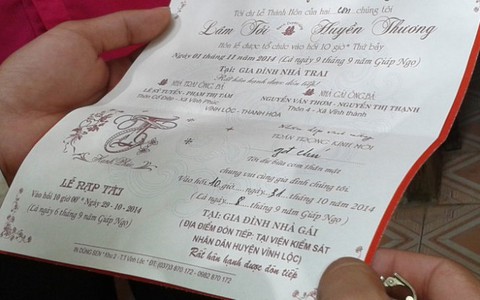 Tới dự Lễ Thành Hôn của hai con chúng tôi
Lâm Tới Huyền Thương
Hôn lễ được tổ chức vào hồi 10 giờ* Thứ bảy
Ngày 01 tháng 11 năm 2014 (Là ngày 9 tháng 9 năm Giáp Ngọ)
Tại: GIA ĐÌNH NHÀ TRAI
Rất hân hạnh được đón tiếp!
NHÀ TRAI ÔNG BÀ
LÊ SỸ TUYỂN - PHẠM THỊ TÂM
Xã Vĩnh Phúc
NHÀ GÁI ÔNG BÀ
NGUYỄN VĂN THƠM - NGUYỄN THỊ THANH
Thôn 4 - Xã Vĩnh thành
VĨNH LỘC - THANH HÓA
Hạnh Phúc
LỄ NẠP TÀI
Vào hồi 10 giờ 00' * Ngày 29 - 10 - 2014
(Là ngày 6 tháng 9 năm Giáp Ngọ)
TRÂN TRỌNG KÍNH MỜI
Tới dự bữa cơm thân mật
chung vui cùng gia đình chúng tôi.
Vào hồi 10 giờ ..... ngày 31 tháng 10 năm 2014
(Là ngày 8 tháng 9 năm Giáp Ngọ)
TẠI: GIA ĐÌNH NHÀ GÁI
(ĐỊA ĐIỂM ĐÓN TIẾP: TẠI VIỆN KIỂM SÁT
NHÂN DÂN HUYỆN VĨNH LỘC)
Rất hân hạnh được đón tiếp